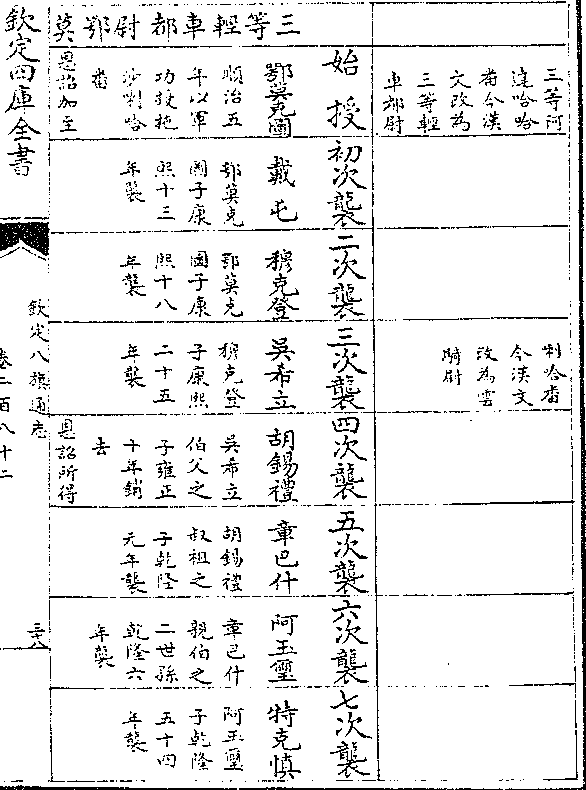 三等阿
達哈哈
番今漢
文改為
三等輕
車都尉
剌哈番
今漢文
改為雲
騎尉
始授
初次襲
二次襲
三次襲
四次襲
五次襲
六次襲
七次襲
鄂莫克圖
順治五
年以軍
功授拖
沙喇哈
番
恩詔加至
三等輕車都尉鄂莫
戴屯
鄂莫克
圖子康
熙十三
年襲
穆克登
鄂莫克
圖子康
熙十八
年襲
吳希立
穆克登
子康熙
二十五
年襲
胡錫禮
吳希立
伯父之
子雍正
十年銷
去
恩詔所得
章巴什
胡錫禮
叔祖之
子乾隆
元年襲
阿玉璽
章巴什
親伯之
二世孫
乾隆六
年襲
特克慎
阿玉璽
子乾隆
五十四
年襲
欽定四庫全書
欽定八旗通志
卷二百八十二